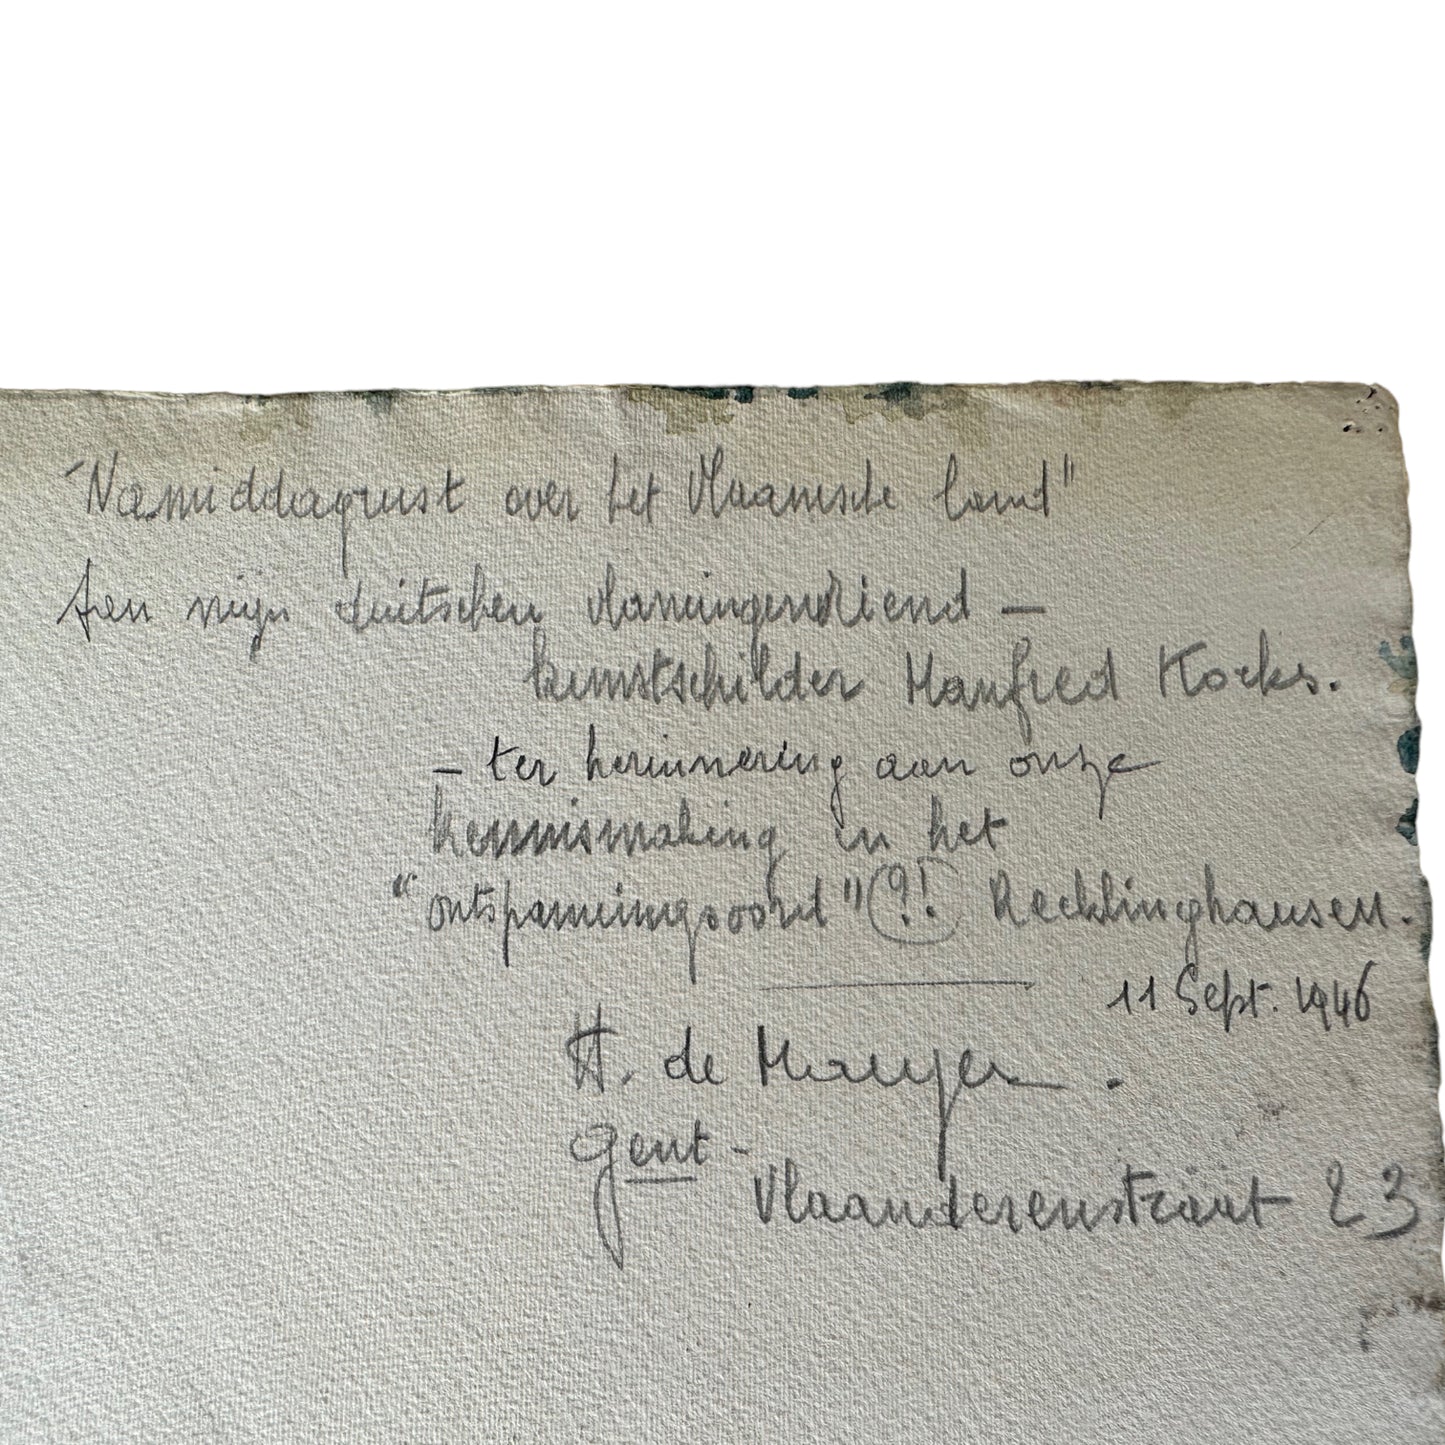 "Namiddagrust over het Vlaamsche land"
Aen mijn duitschen vlamingenvriend –
kunstschilder Manfred Kocks.
– ter herinnering aan onze
kennismaking in het
"ontspanningsoord" (?!) Recklinghausen.
11 Sept. 1946
H. de Mauyer.
Gent -
Vlaanderenstraat 23